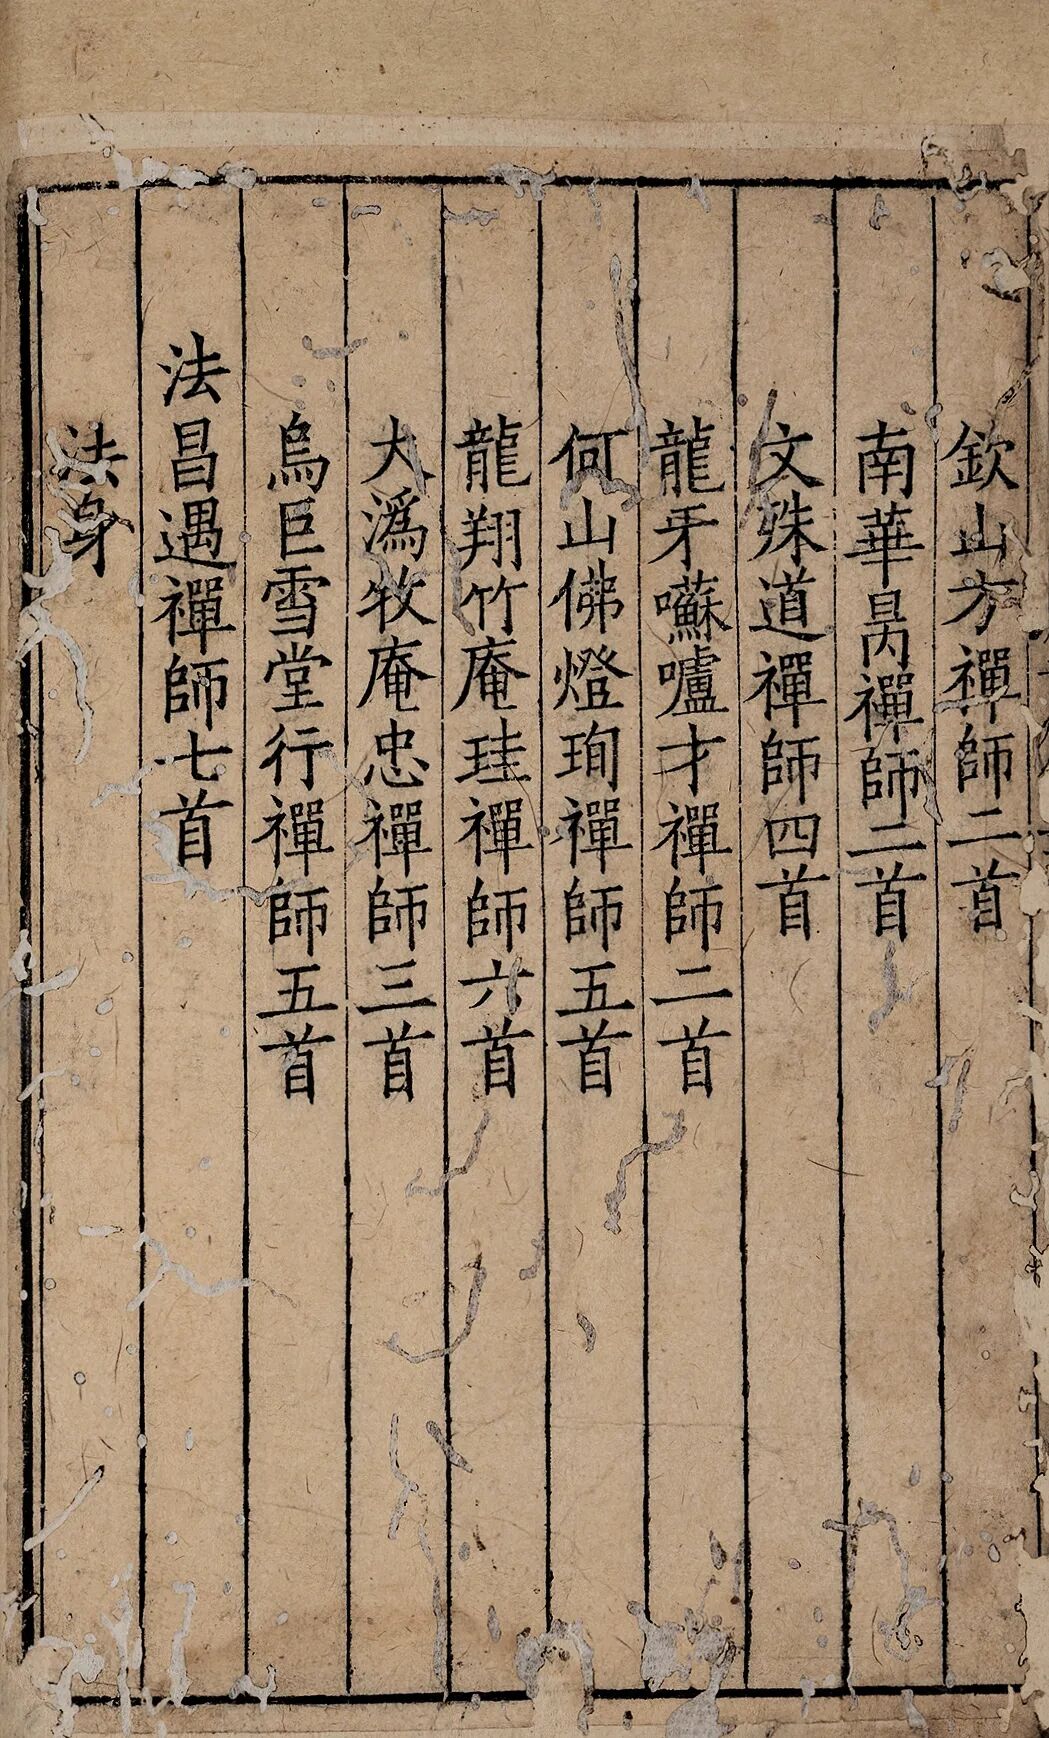 欽山方禪師二首
南華昺禪師二首
文殊道禪師四首
龍牙囌嚧才禪師二首
何山佛燈珣禪師五首
龍翔竹庵珪禪師六首
大溈牧庵忠禪師三首
烏巨雪堂行禪師五首
法昌遇禪師七首
法身